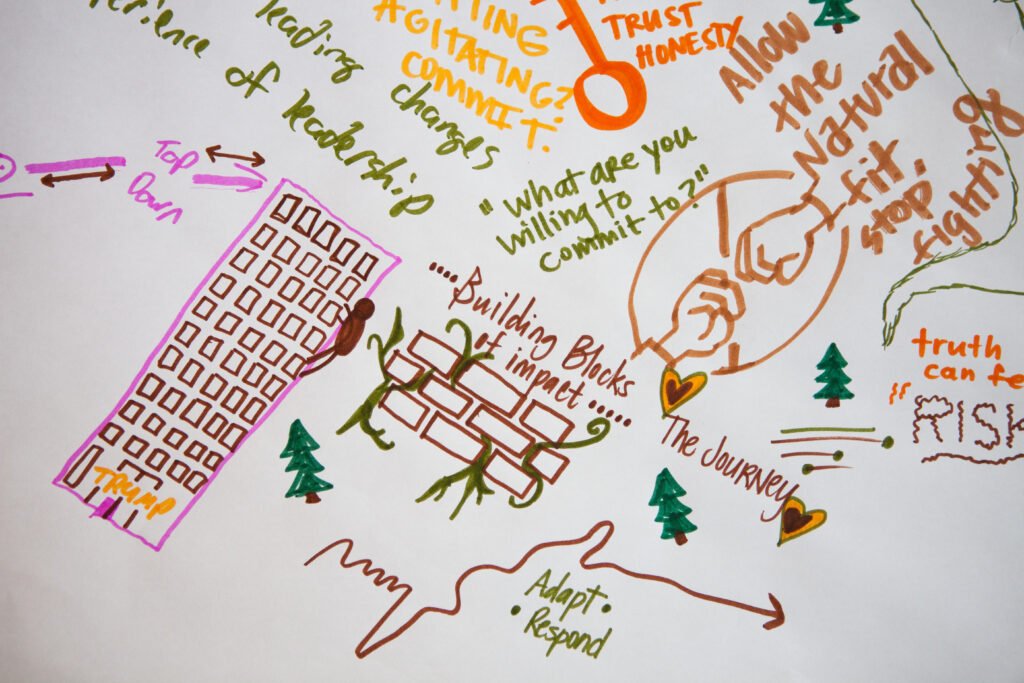 leading
changes
of leadership
AGITATING?
COMMIT.
TRUST
HONESTY
Allow
the
Natural
fit
stop
fighting
"What are you
willing to
commit to?"
Top
Down
Building Blocks
of impact
TRUMP
The JOURNEY
truth
can
RISK
Adapt
Respond